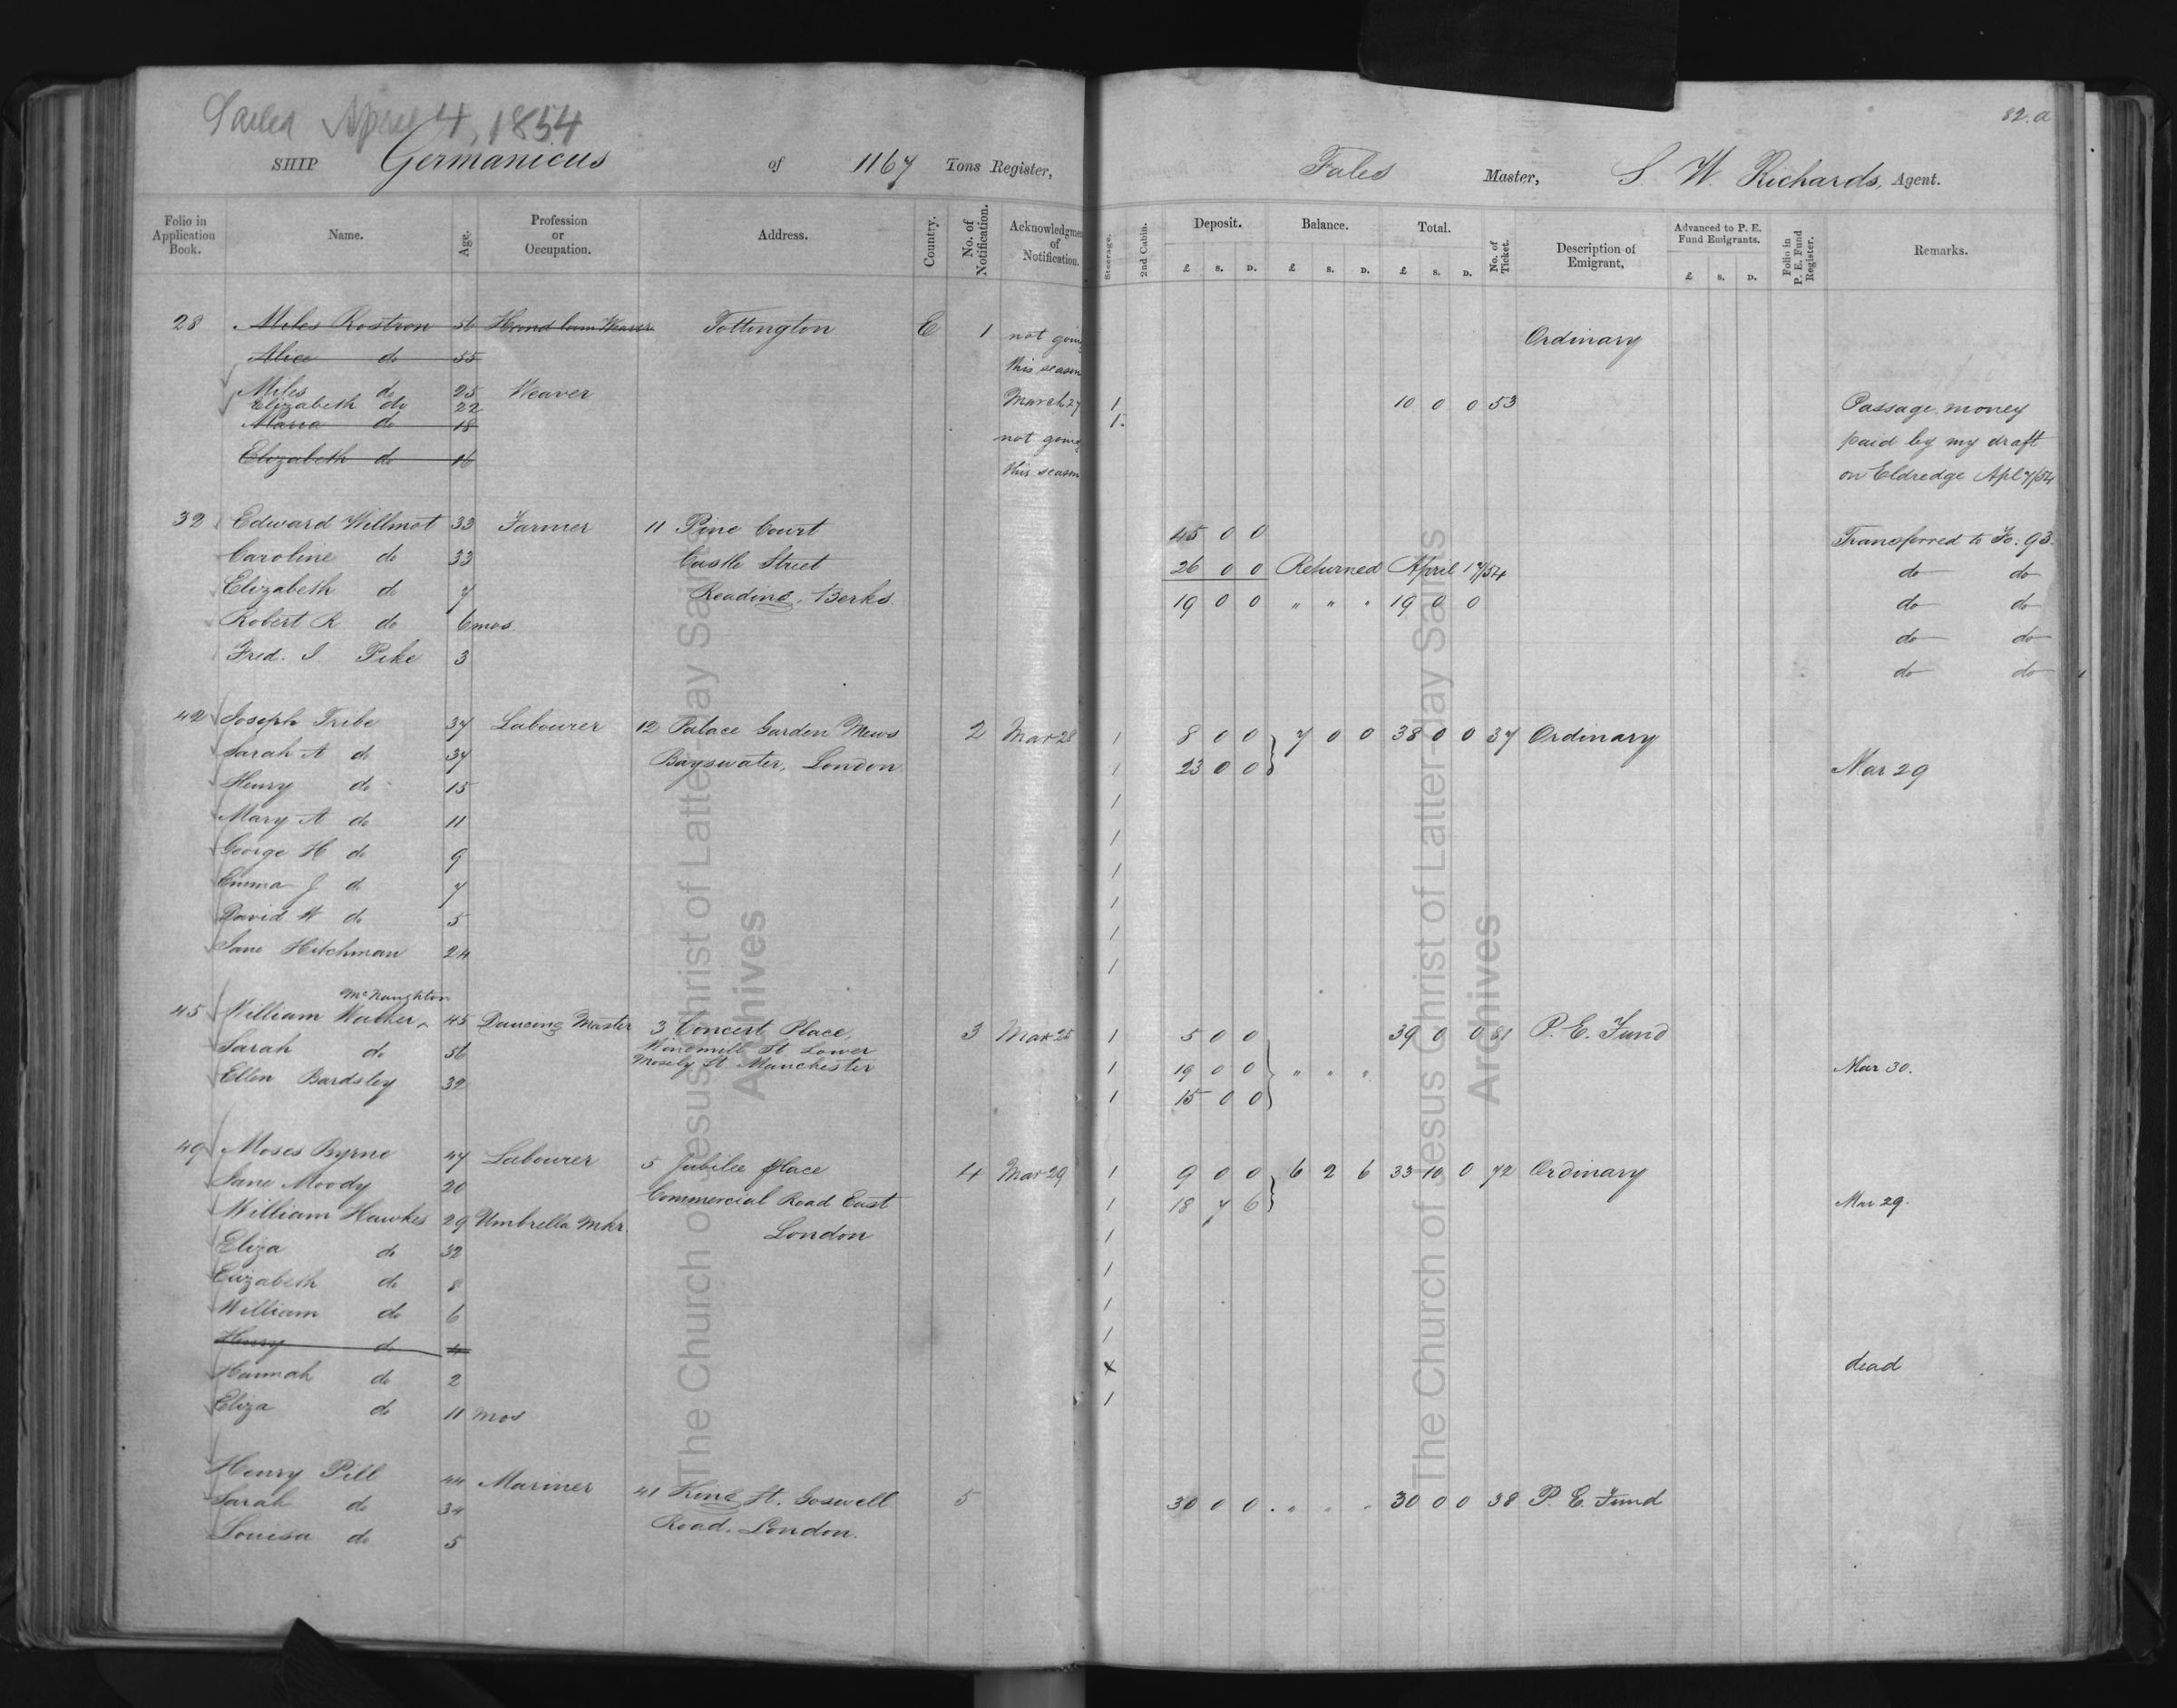 Sailed April 4, 1854
82.a
SHIP Germanicus of 1167 Tons Register, Fales Master, S. W. Richards, Agent.
Folio in Application Book. Name. Age. Profession or Occupation. Address. Country. No. of Notification. Acknowledgment of Notification. Steerage. 2nd Cabin. Deposit. £ s. D. Balance. £ s. D. Total. £ s. D. No. of Ticket. Description of Emigrant. Advanced to P. E. Fund Emigrants. £ s. D. Folio in P. E. Fund Register. Remarks.
28 Miles Rostron 56 Hand loom Weaver Tottington E 1 not going Ordinary
Alice do 55 this season
Miles do 25 Weaver March 27 1 10 0 0 53 Passage money
Elizabeth do 22 1.
Maria do 18 not going paid by my draft
Elizabeth do 16 this season on Eldredge Apl 7/54
32 Edward Willmot 33 Farmer 11 Pine Court 45 0 0 Transferred to Fo. 93.
Caroline do 33 Castle Street 26 0 0 Returned April 17/54 do do
Elizabeth do 7 Reading, Berks. 19 0 0 " " " 19 0 0 do do
Robert R do 6 mos. do do
Fred. J. Pike 3 do do
42 Joseph Tribe 37 Labourer 12 Palace Garden Mews 2 Mar 28 1 8 0 0 7 0 0 38 0 0 37 Ordinary
Sarah A do 37 Bayswater, London 1 23 0 0 Mar 29
Henry do 15 1
Mary A do 11 1
George H do 9 1
Emma J do 7 1
David W do 5 1
Jane Hitchman 24 1
McNaughton
45 William Walker 45 Dancing Master 3 Concert Place, 3 Mar 25 1 5 0 0 39 0 0 81 P. E. Fund
Sarah do 56 Windmill St Lower 1 19 0 0 " " " Mar 30.
Mosely St Manchester
Ellen Bardsley 32 1 15 0 0
49 Moses Byrne 47 Labourer 5 Jubilee place 4 Mar 29 1 9 0 0 6 2 6 33 10 0 72 Ordinary
Jane Moody 20 Commercial Road East 1 18 7 6 Mar 29.
William Hawkes 29 Umbrella Mkr. London 1
Eliza do 32 1
Elizabeth do 8 1
William do 6 1
Henry do 4 x dead
Hannah do 2 1
Eliza do 11 mos
Henry Pill 44 Mariner 41 King St. Goswell 5 30 0 0 . " " " 30 0 0 38 P. E. Fund
Sarah do 34 Road, London.
Louisa do 5
The Church of Jesus Christ of Latter-day Saints
Archives
The Church of Jesus Christ of Latter-day Saints
Archives